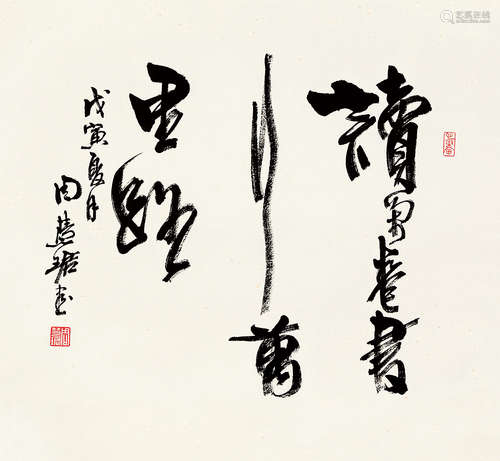 讀萬卷書
行萬
里路
戊寅夏月
周慧珺書